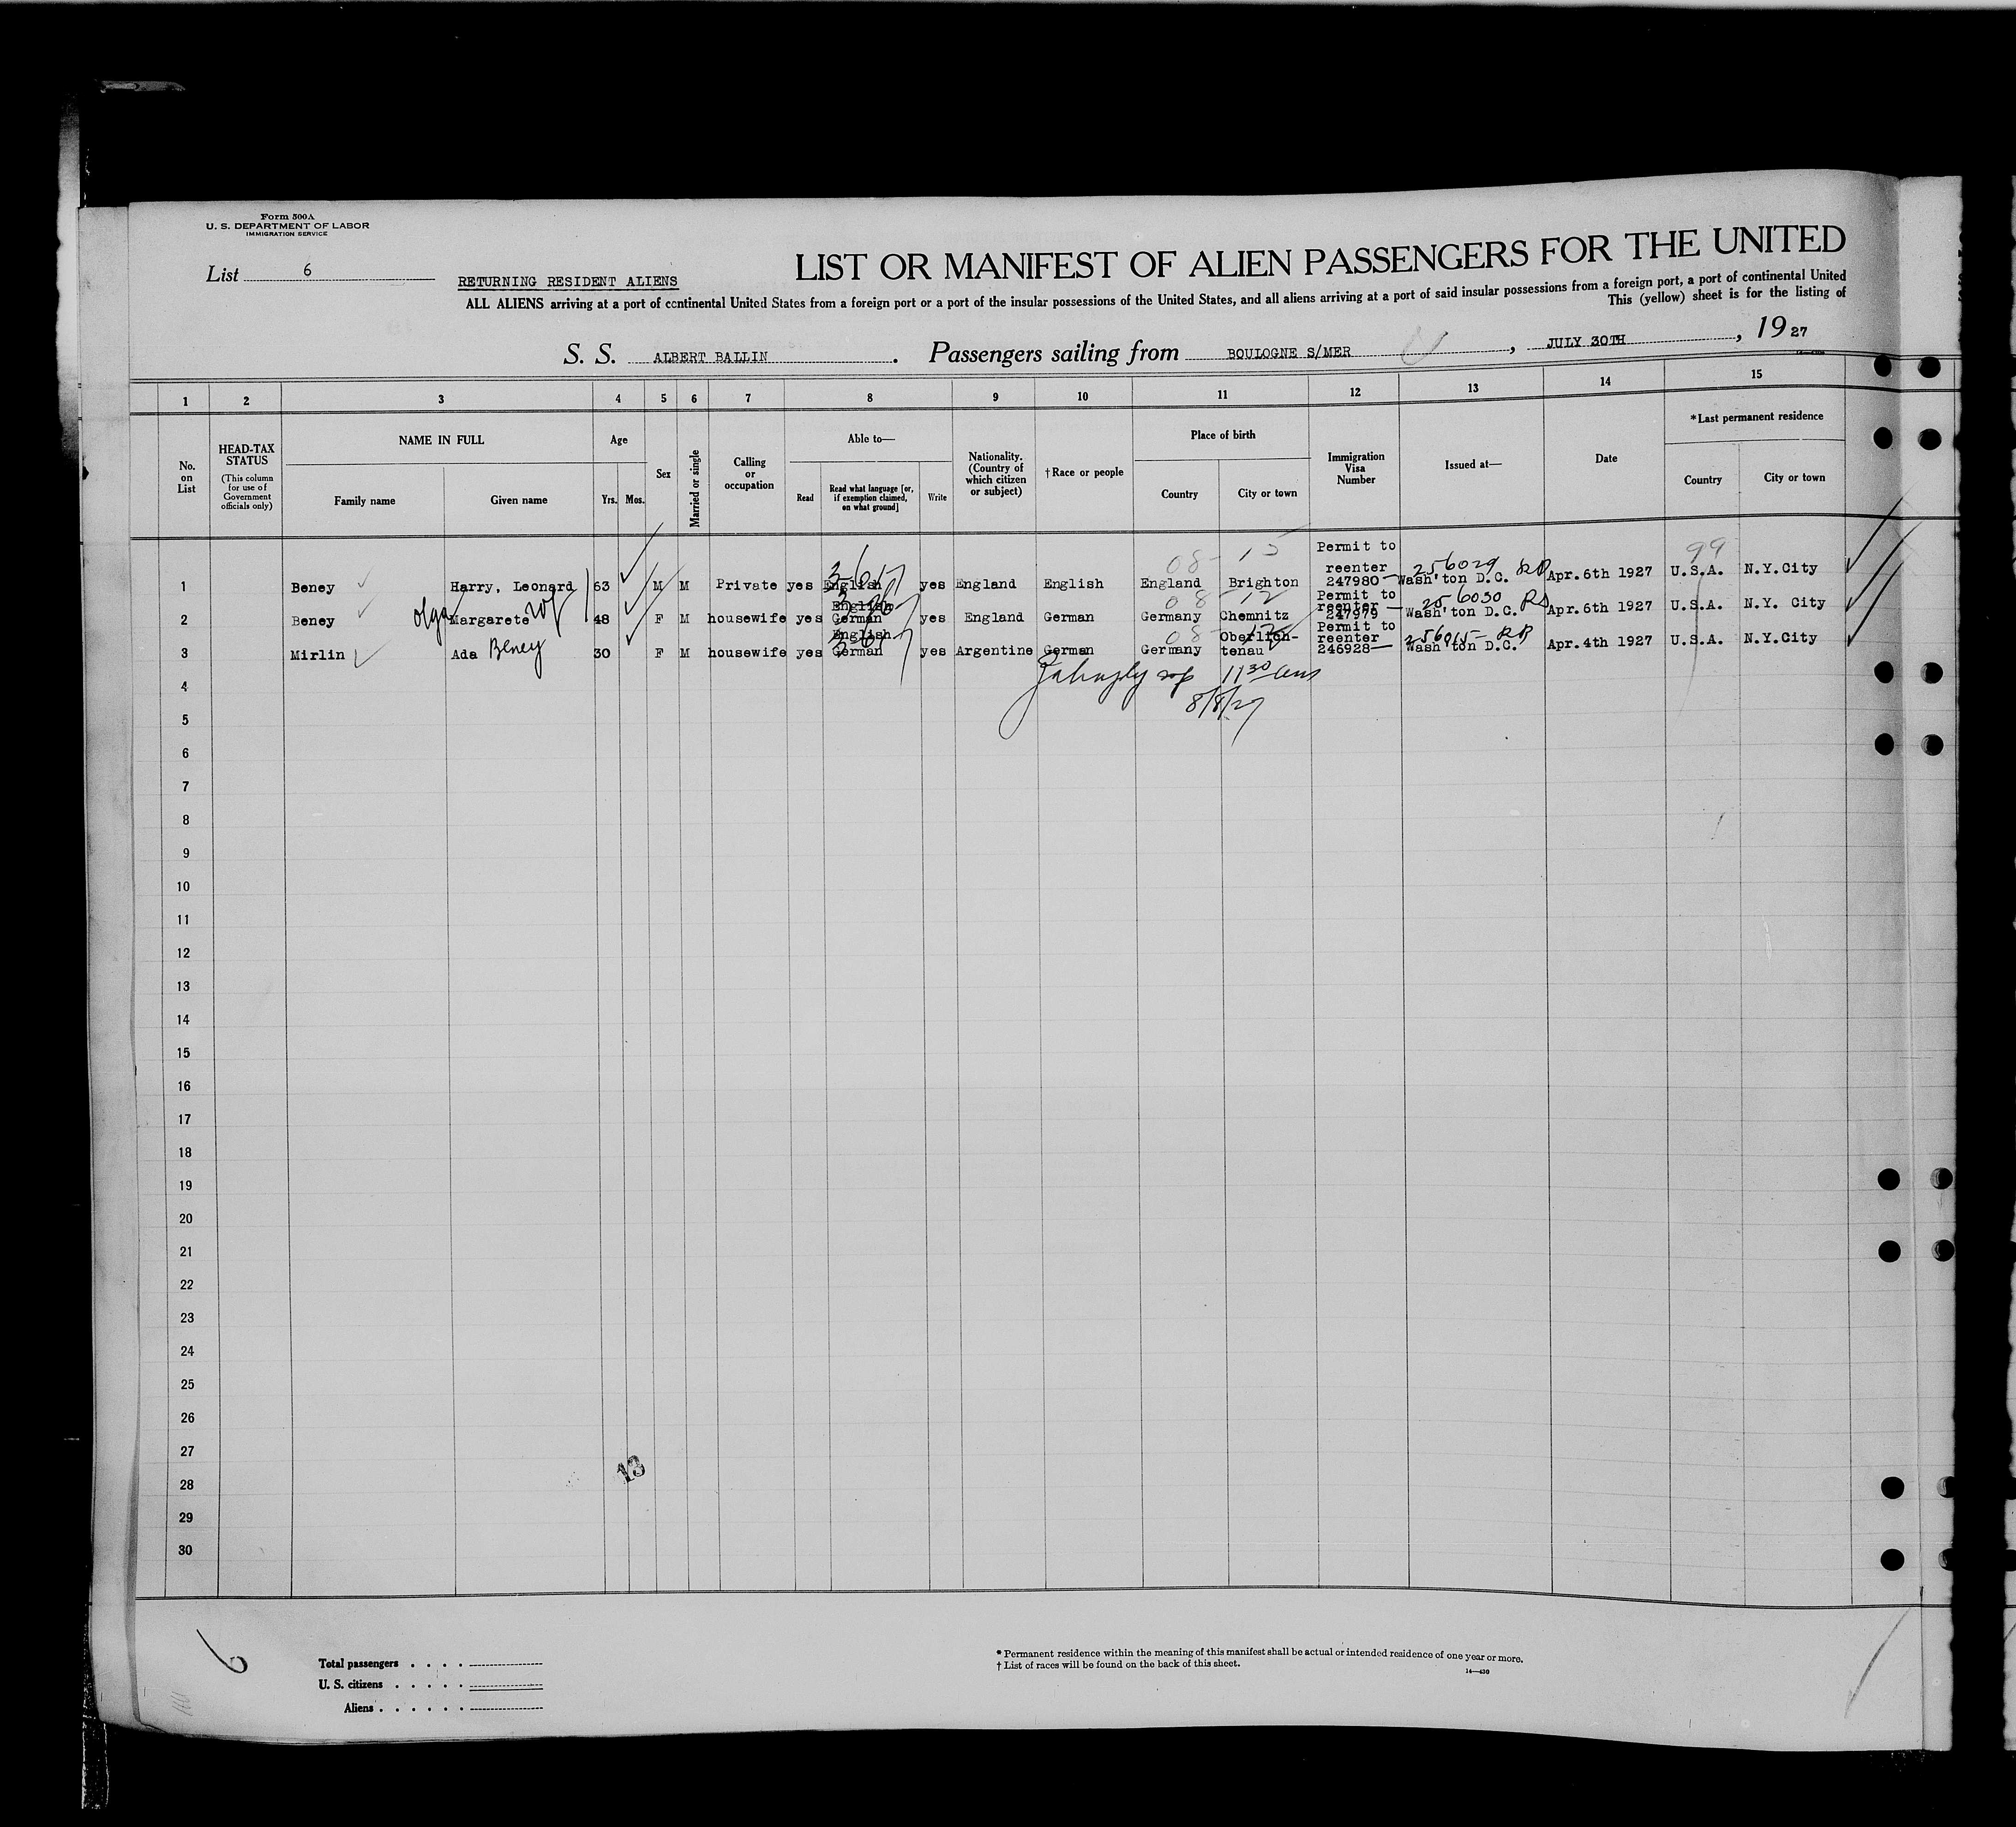 Form 500A
U. S. DEPARTMENT OF LABOR
IMMIGRATION SERVICE
List 6
RETURNING RESIDENT ALIENS
LIST OR MANIFEST OF ALIEN PASSENGERS FOR THE UNITED
ALL ALIENS arriving at a port of continental United States from a foreign port or a port of the insular possessions of the United States, and all aliens arriving at a port of said insular possessions from a foreign port, a port of continental United
This (yellow) sheet is for the listing of
S. S. ALBERT BALLIN . Passengers sailing from BOULOGNE S/MER , JULY 30TH , 19 27
1 2 3 4 5 6 7 8 9 10 11 12 13 14 15
No. on List
HEAD-TAX STATUS
(This column for use of Government officials only)
NAME IN FULL
Family name
Given name
Age
Yrs. Mos.
Sex
Married or single
Calling or occupation
Able to—
Read
Read what language [or, if exemption claimed, on what ground]
Write
Nationality. (Country of which citizen or subject)
†Race or people
Place of birth
Country
City or town
Immigration Visa Number
Issued at—
Date
*Last permanent residence
Country
City or town
08- 99
1 Beney Harry, Leonard 63 M M Private yes English yes England English England Brighton Permit to reenter 247980 256029 Wash'ton D.C. Apr.6th 1927 U.S.A. N.Y.City
08 12
2 Beney Olga Margarete 48 F M housewife yes English German yes England German Germany Chemnitz Permit to reenter 247979 256030 Wash'ton D.C. Apr.6th 1927 U.S.A. N.Y. City
08 12
3 Mirlin Ada Beney 30 F M housewife yes English German yes Argentine German Germany Oberlich-tenau Permit to reenter 246928 256015 Wash'ton D.C. Apr.4th 1927 U.S.A. N.Y.City
4 11 30 am
5 8/8/27
6
7
8
9
10
11
12
13
14
15
16
17
18
19
20
21
22
23
24
25
26
27
13
28
29
30
6
Total passengers . . . .
U. S. citizens . . . . .
Aliens . . . . . .
* Permanent residence within the meaning of this manifest shall be actual or intended residence of one year or more.
† List of races will be found on the back of this sheet.
14—430